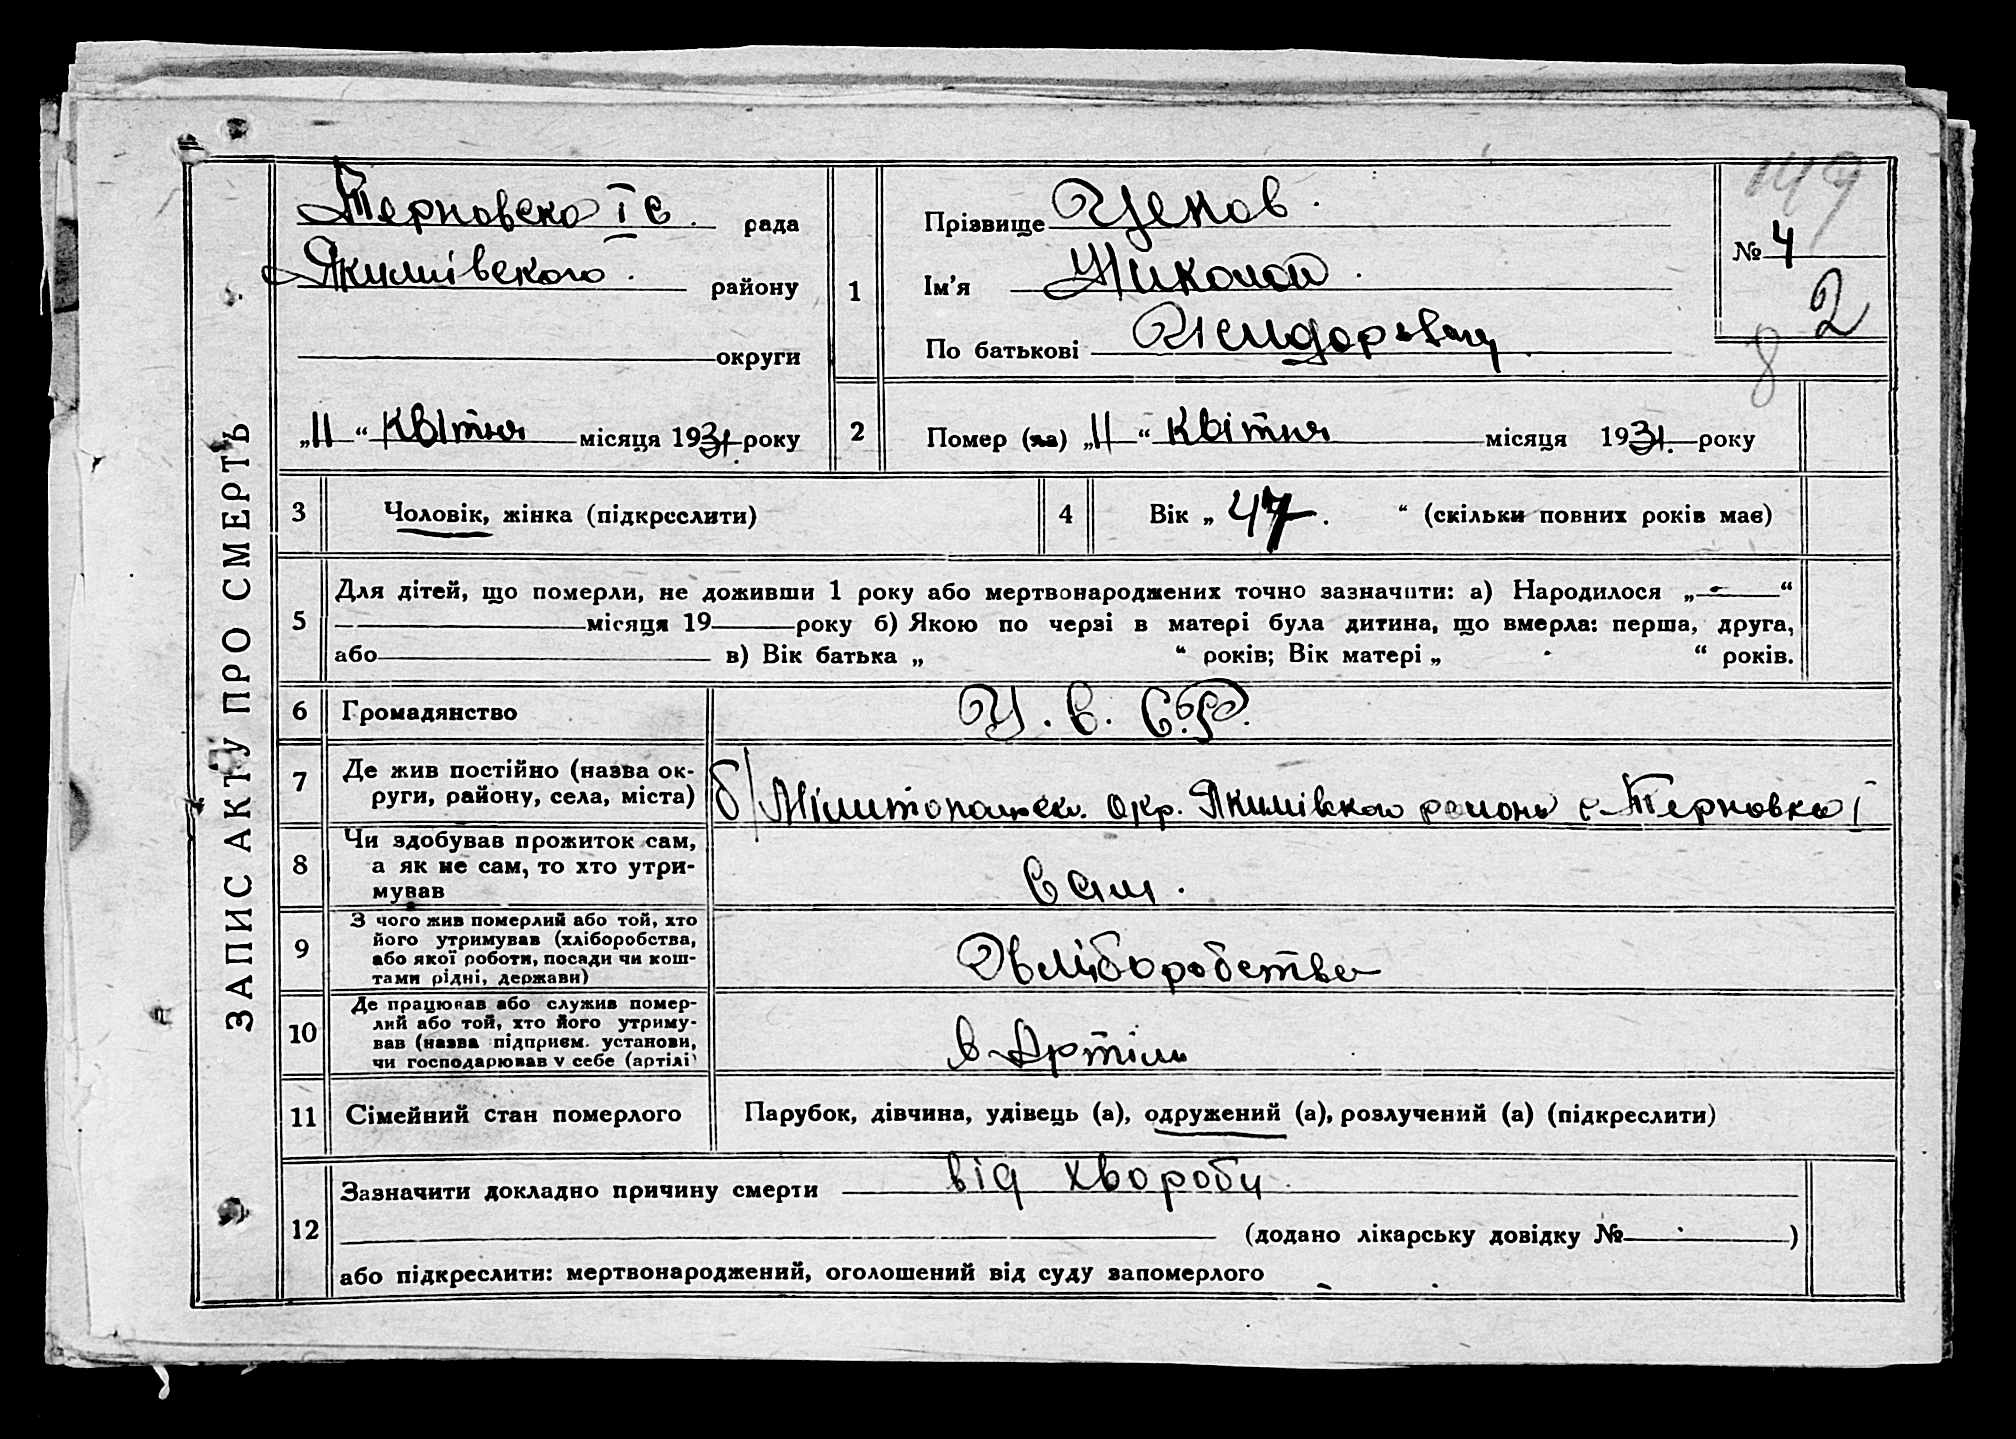 ЗАПИС АКТУ ПРО СМЕРТЬ
Терновско І є. рада
Якимівского. району
округи
„11“ Квітня місяця 1931 року
1
Прізвище Цеков.
Ім'я Николай.
По батькові
149
№ 4
2
8
2
Помер (ла) „11“ Квітня місяця 1931. року
3
Чоловік, жінка (підкреслити)
4
Вік „47.“ (скільки повних років має)
5
Для дітей, що померли, не доживши 1 року або мертвонароджених точно зазначити: а) Народилося „—“
— місяця 19 року б) Якою по черзі в матері була дитина, що вмерла: перша, друга,
або в) Вік батька „ “ років; Вік матері „ “ років.
6
Громадянство
У. С. С.Р.
7
Де жив постійно (назва ок-
руги, району, села, міста)
б/Мілитопольск. Окр. Якимівского района с-Терновка І
8
Чи здобував прожиток сам,
а як не сам, то хто утри-
мував
Сам.
9
З чого жив померлий або той, хто
його утримував (хліборобства,
або якої роботи, посади чи кош-
тами рідні, держави)
Хвліборобства
10
Де працював або служив помер-
лий або той, хто його утриму-
вав (назва підприєм. установи,
чи господарював у себе (артілі)
в Артіли
11
Сімейний стан померлого
Парубок, дівчина, удівець (а), одружений (а), розлучений (а) (підкреслити)
12
Зазначити докладно причину смерти від хвороби.
(додано лікарську довідку № )
або підкреслити: мертвонароджений, оголошений від суду запомерлого